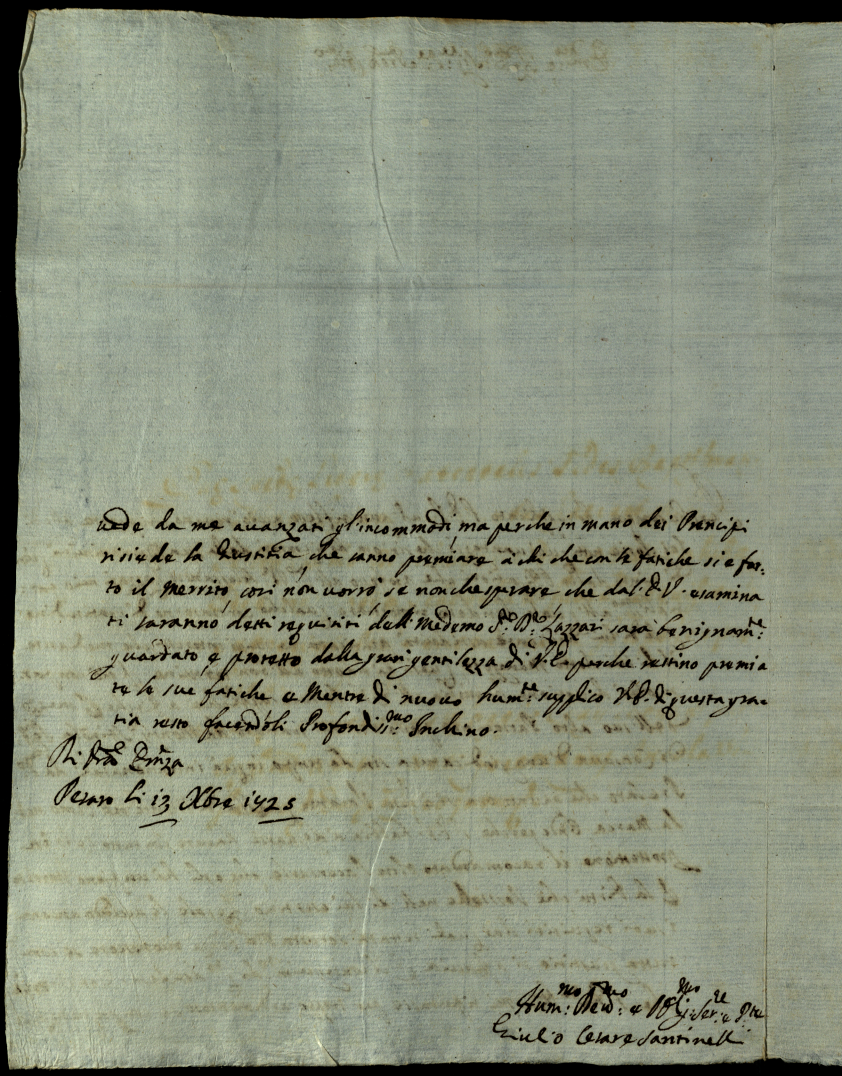 vede da me avanzati gl'incommodi, ma perche in mano dei Prencipi
risiede la Giustitia, che sanno premiare à chi che con le fatiche si e fat-
to il merrito, così non vorrò se non che sperare, che dal E.V. esamina
ti saranno detti requisiti dell'Medemo S.re D.re Lazzari sarà benignam.te
guardato e protetto dalla gran gentilezza di V.E. perche restino premia
te le sue fatiche e Mentre di nuovo hum.te supplico V.E. di questa gra-
tia resto facendoli Profondis.mo Inchino.
Di Vra Em̃za
Pesaro li 13 Xbre 1725
Hum.mo Dev.mo e Obl.mo Ser.re e
Giulio Cesare Santinelli